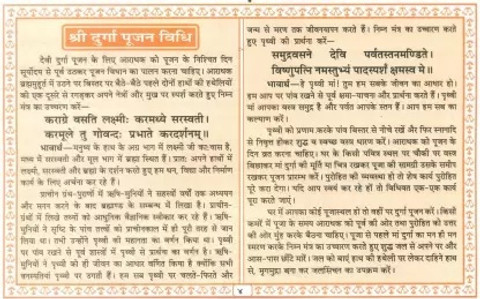 श्री दुर्गा पूजन विधि
देवी दुर्गा पूजन के लिए आराधक को पूजन के निश्चित दिन
सूर्योदय से पूर्व उठकर पूजन विधान का पालन करना चाहिए। आराधक
ब्रह्ममुहूर्त में उठने पर बिस्तर पर बैठे-बैठे पहले दोनों हाथों की हथेलियों
को एक दूसरे से रगड़कर अपने नेत्रों और मुख पर स्पर्श करते हुए निम्न
मंत्र का उच्चारण करे—
कराग्रे वसति लक्ष्मीः करमध्ये सरस्वती।
करमूले तु गोवन्दः प्रभाते करदर्शनम्॥
भावार्थ—मनुष्य के हाथ के अग्र भाग में लक्ष्मी जी का वास है,
मध्य में सरस्वती और मूल भाग में ब्रह्मा स्थित हैं। प्रातः अपने हाथों में
लक्ष्मी, सरस्वती और ब्रह्मा के दर्शन करते हुए हम धन, विद्या और निर्माण
कार्य के लिए अर्चना कर रहे हैं।
प्राचीन ग्रंथ-पुराणों में ऋषि-मुनियों ने सहस्त्रों वर्षों तक अध्ययन
और मनन करने के बाद ब्रह्माण्ड के सम्बन्ध में लिखा है। प्राचीन-
ग्रंथों में लिखे तथ्यों को आधुनिक वैज्ञानिक स्वीकार कर रहे हैं। ऋषि-
मुनियों ने सृष्टि के पांच तत्वों को प्राचीनकाल में ही पूरी तरह से जान
लिया था। तभी उन्होंने पृथ्वी की महानता का वर्णन किया था। पृथ्वी
पर पांव रखने से पूर्व शास्त्रों में पृथ्वी से प्रार्थना का वर्णन है। ऋषि-
मुनियों ने पृथ्वी को ही जीवन का आधार वर्णित किया है क्योंकि सभी
वनस्पतियां पृथ्वी पर उगती हैं। हम सब पृथ्वी पर चलते-फिरते और
जन्म से मरण तक जीवनयापन करते हैं। निम्न मंत्र का उच्चारण करते
हुए पृथ्वी की प्रार्थना करें—
समुद्रवसने देवि पर्वतस्तनमण्डिते।
विष्णुपत्नि नमस्तुभ्यं पादस्पर्शं क्षमस्व मे॥
भावार्थ—हे पृथ्वी मां! तुम हम सबके जीवन का आधार हो।
हम आप पर पांव रखने से पूर्व क्षमा-याचना और प्रार्थना करते हैं। पृथ्वी
मां आपका वस्त्र समुद्र है और पर्वत आपके स्तन हैं। आप हम सब का
कल्याण करें।
पृथ्वी को प्रणाम करके पांव बिस्तर से नीचे रखें और फिर स्नानादि
से निवृत्त होकर शुद्ध व स्वच्छ वस्त्र धारण करें। आराधक को पूजन के
दिन व्रत करना चाहिए। घर के किसी पवित्र स्थल पर चौकी पर वस्त्र
बिछाकर मां दुर्गा की मूर्ति या चित्र रखकर पूजा की सामग्री उसके समीप
रखकर पूजन प्रारम्भ करें। पुरोहित की व्यवस्था हो तो शेष कार्य पुरोहित
पूरे करा देगा। यदि आप स्वयं कर रहे हों तो विधिवत एक-एक कार्य
पूरा करते जाएं।
घर में आपका कोई पूजास्थल हो तो वहां पर दुर्गा पूजन करें। किसी
कमरे में पूजा के समय आराधक को पूर्व की ओर तथा पुरोहित को उत्तर
की ओर मुंह करके बैठना चाहिए। पूजा से पहले मां दुर्गा का मन ही मन
स्मरण करके निम्न मंत्र का उच्चारण करते हुए शुद्ध जल से अपने पर और
आस-पास छींटे मारें। जल को बाएं हाथ की हथेली पर लेकर दाहिने हाथ
से, मृगमुद्रा बना कर जलसिंचन का उपक्रम करें।
४